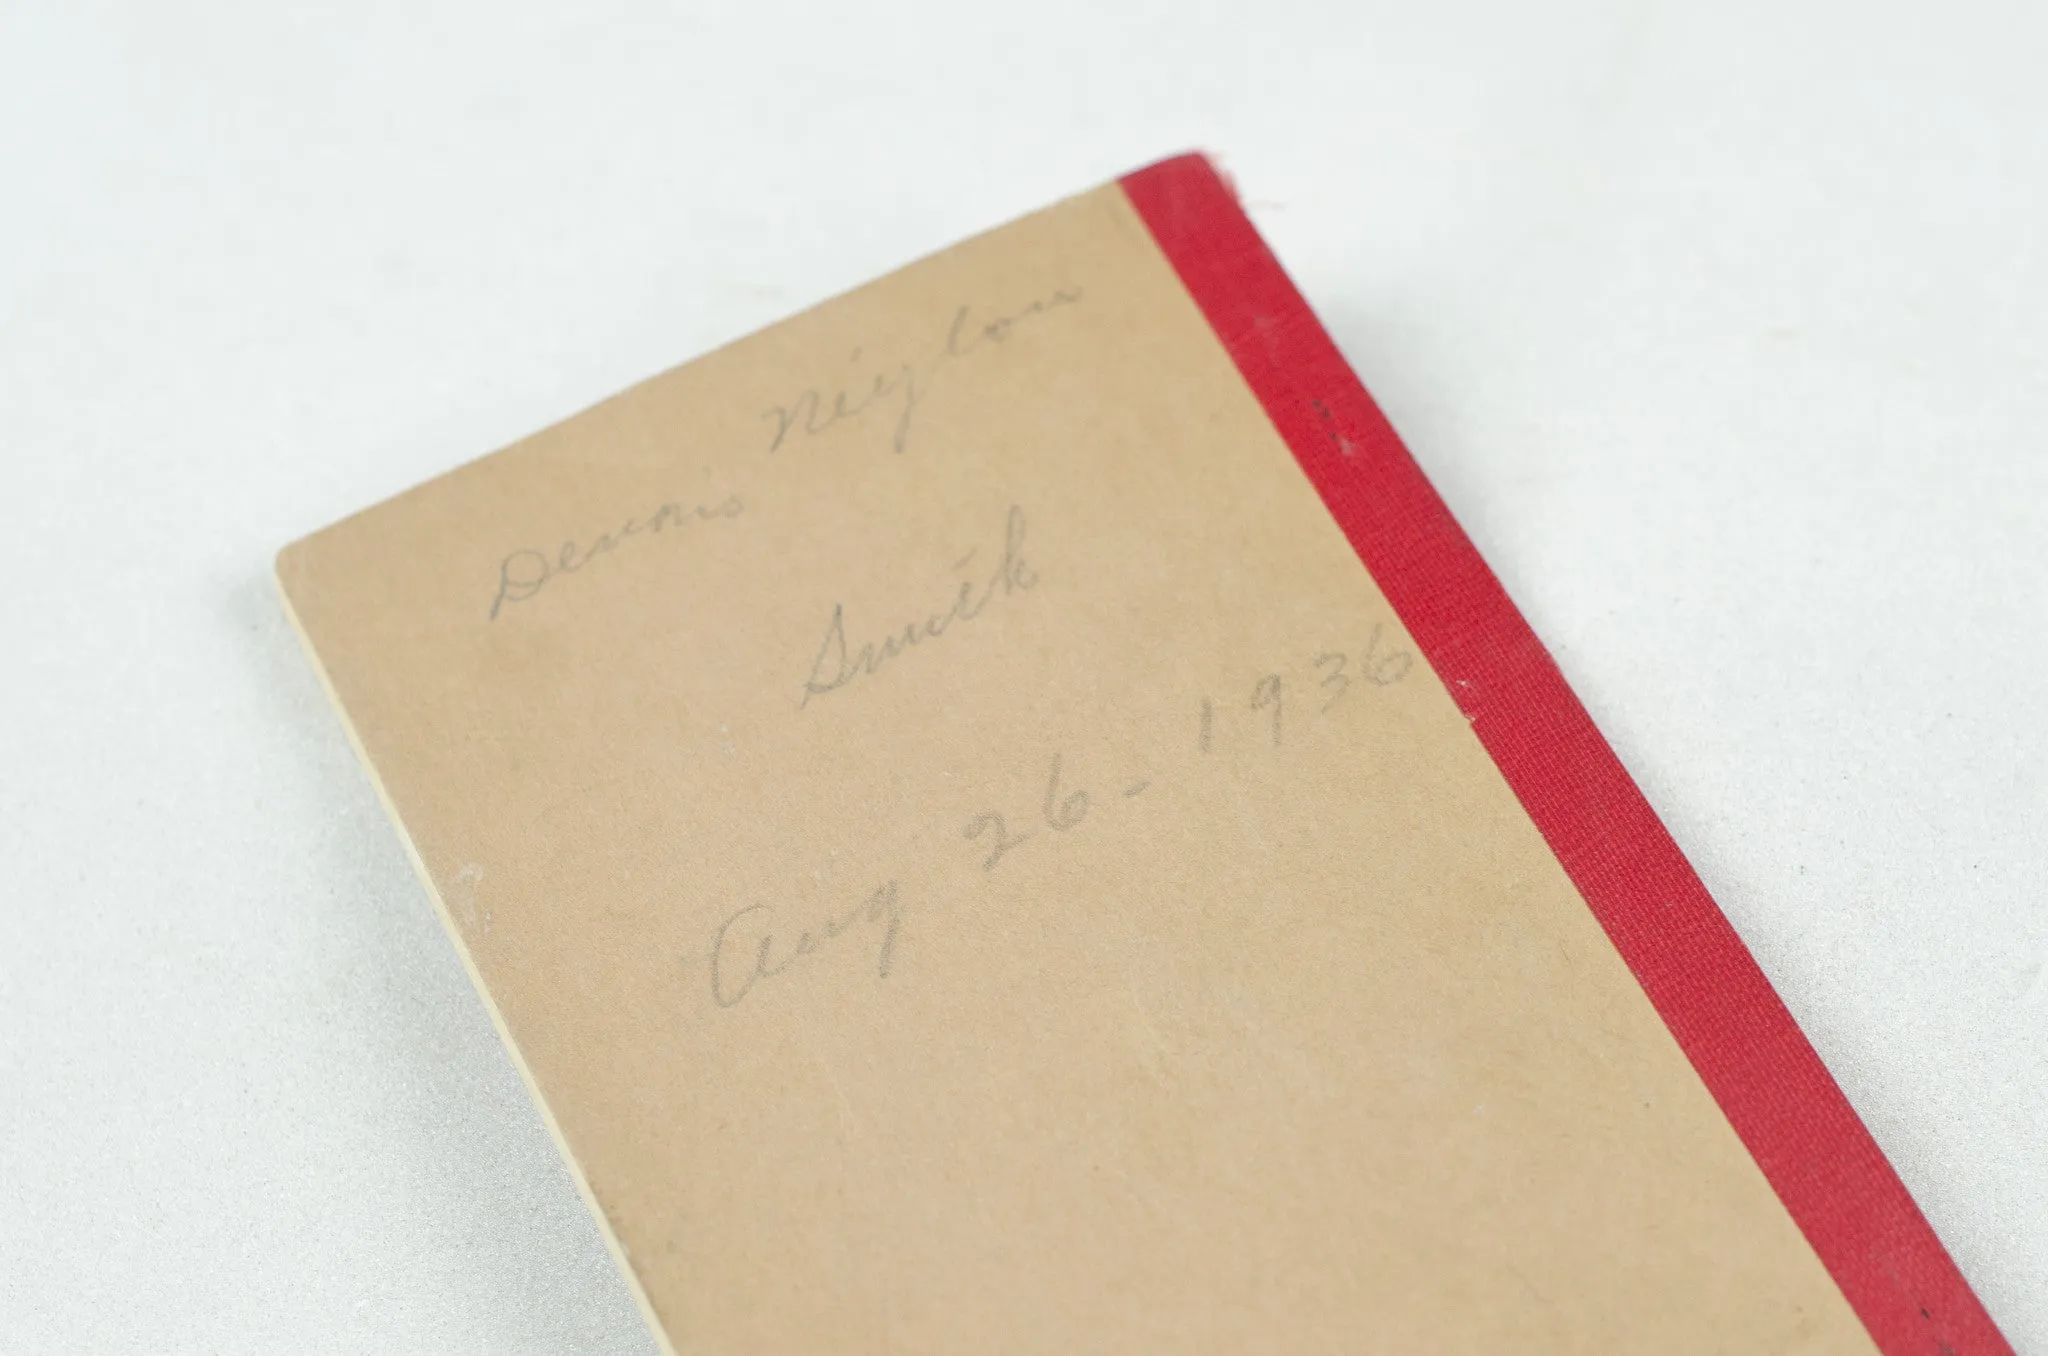 Dennis Neylon
Smith
Aug 26-1936